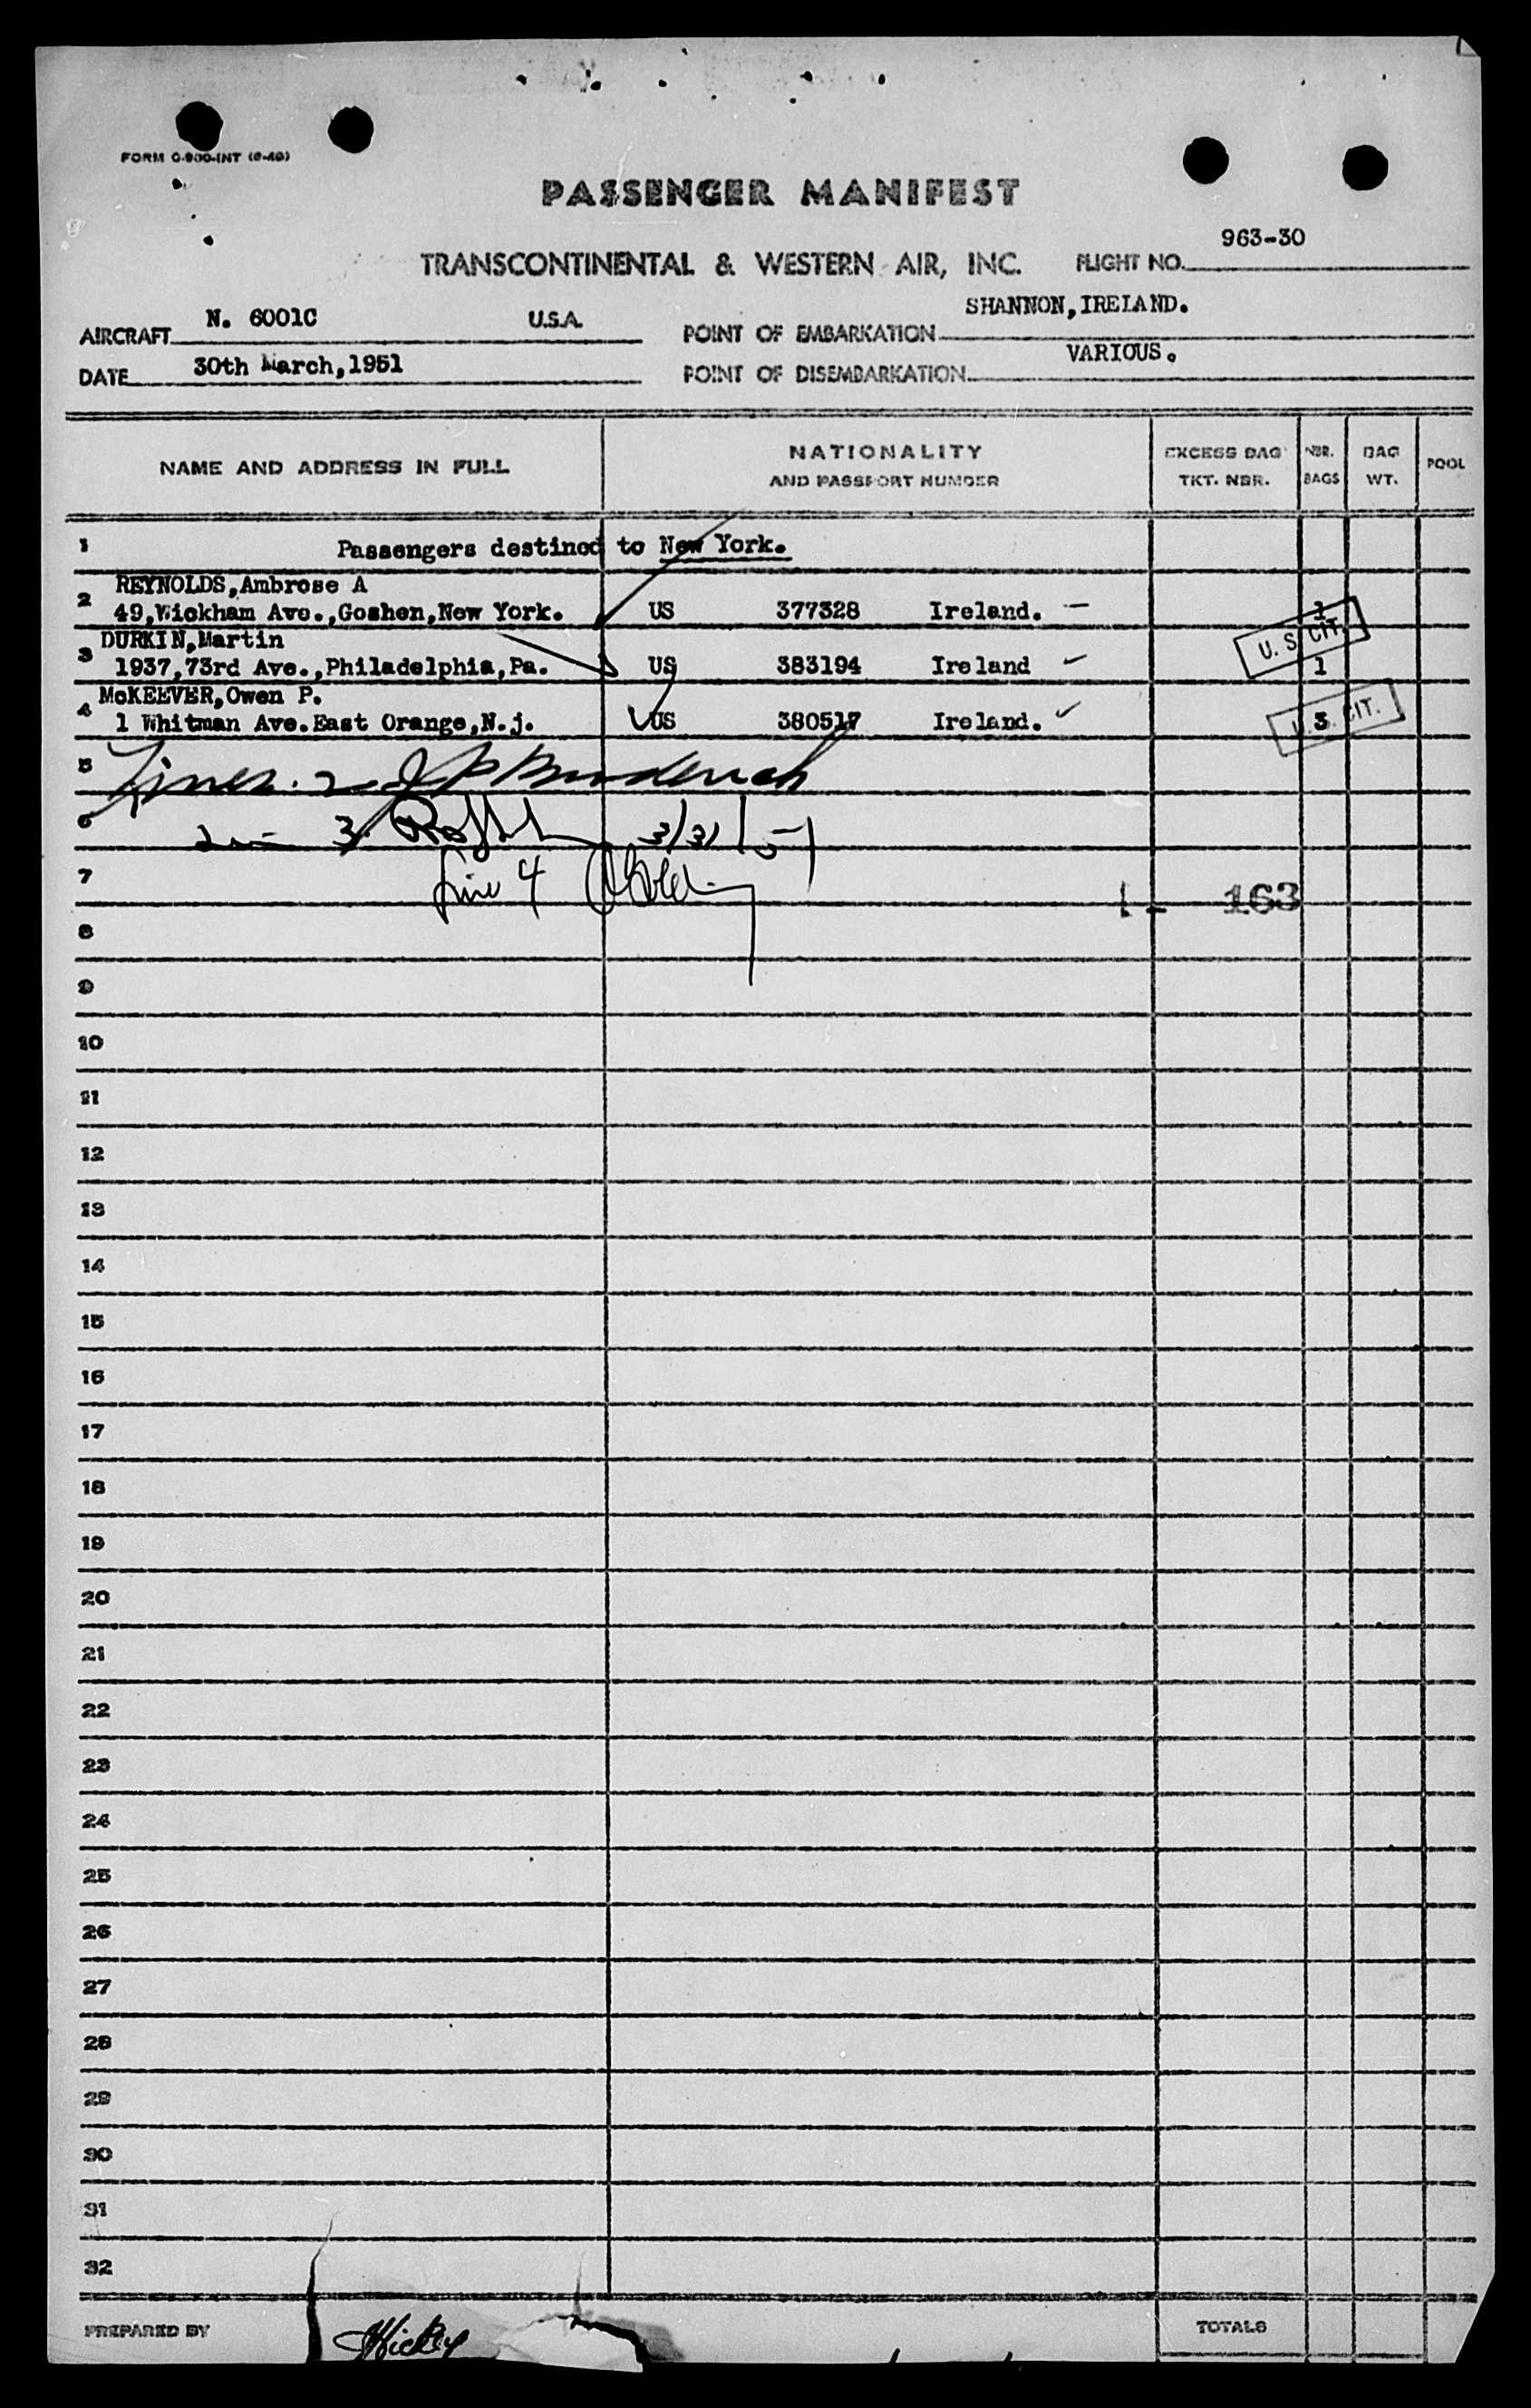 FORM O-900-INT (9-46)
PASSENGER MANIFEST
963-30
TRANSCONTINENTAL & WESTERN AIR, INC. FLIGHT NO.
AIRCRAFT N. 6001C U.S.A. POINT OF EMBARKATION SHANNON, IRELAND.
DATE 30th March, 1951 POINT OF DISEMBARKATION VARIOUS.
NAME AND ADDRESS IN FULL NATIONALITY AND PASSPORT NUMBER EXCESS BAG TKT. NBR. NBR. BAGS BAG WT. POOL
1 Passengers destined to New York.
REYNOLDS, Ambrose A
2 49, Wickham Ave., Goshen, New York. US 377328 Ireland. — 1
DURKIN, Martin U. S. CIT.
3 1937, 73rd Ave., Philadelphia, Pa. US 383194 Ireland ✓ 1
McKEEVER, Owen P.
4 1 Whitman Ave. East Orange, N.j. US 380517 Ireland. ✓ 3 U. S. CIT.
5 Lines. 2
6 Line 3 3/31/51
7 Line 4
1 - 163
8
9
10
11
12
13
14
15
16
17
18
19
20
21
22
23
24
25
26
27
28
29
30
31
32
PREPARED BY JHickey TOTALS